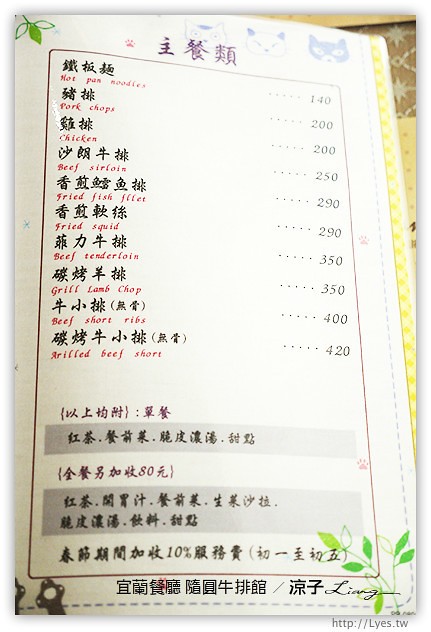 主餐類
鐵板麵
Hot pan noodles
····· 140
豬排
Pork chops
····· 200
雞排
Chicken
····· 200
沙朗牛排
Beef sirloin
····· 250
香煎鱈魚排
Fried fish fllet
····· 290
香煎軟絲
Fried squid
····· 290
菲力牛排
Beef tenderloin
····· 350
碳烤羊排
Grill Lamb Chop
····· 350
牛小排(無骨)
Beef short ribs
····· 400
碳烤牛小排(無骨)
Arilled beef short
····· 420
{以上均附}:單餐
紅茶.餐前菜.脆皮濃湯.甜點
{全餐另加收80元}
紅茶.開胃汁.餐前菜.生菜沙拉.
脆皮濃湯.飲料.甜點
春節期間加收10%服務費(初一至初五)
宜蘭餐廳 隨圓牛排館 ／涼子 Liang
http://Lyes.tw